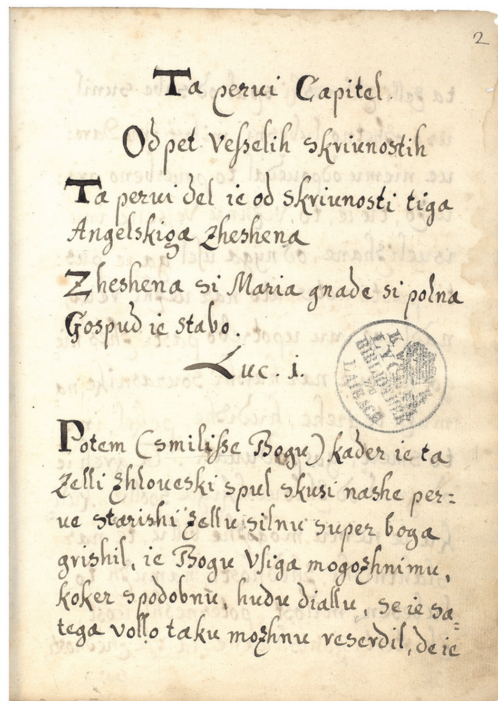 2
Ta pervi Capitel.
Od pet vesselih skrivnostih
Ta pervi del ie od skrivnosti tiga
Angelskiga zheshena
Zheshena si Maria gnade si polna
Gospud ie stabo.
Luc. 1.
K. K.
LYCEAL
BIBLIOTHEK
ZU
LAIBACH
Potem (smilisse Bogu) kader ie ta
Zelli zhloveski spul skusi nashe per=
ve starishi zellu silnu super boga
grishil, ie Bogu Vsiga mogozhnimu,
koker spodobnu, hudu diallu, se ie sa=
tega vollo taku mozhnu reserdil, de ie